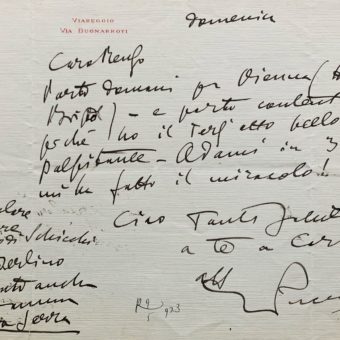 VIAREGGIO
VIA BUONARROTI
domenica
Caro Renzo
Parto domani per Vienna (H
Bristol) – e parto content
perché ho il terz'atto bello
Palpitante – Adami in 3
mi ha fatto il miracolo!
Ciao Tante felicit
a te a
Schicchi
Berlino
anche
923